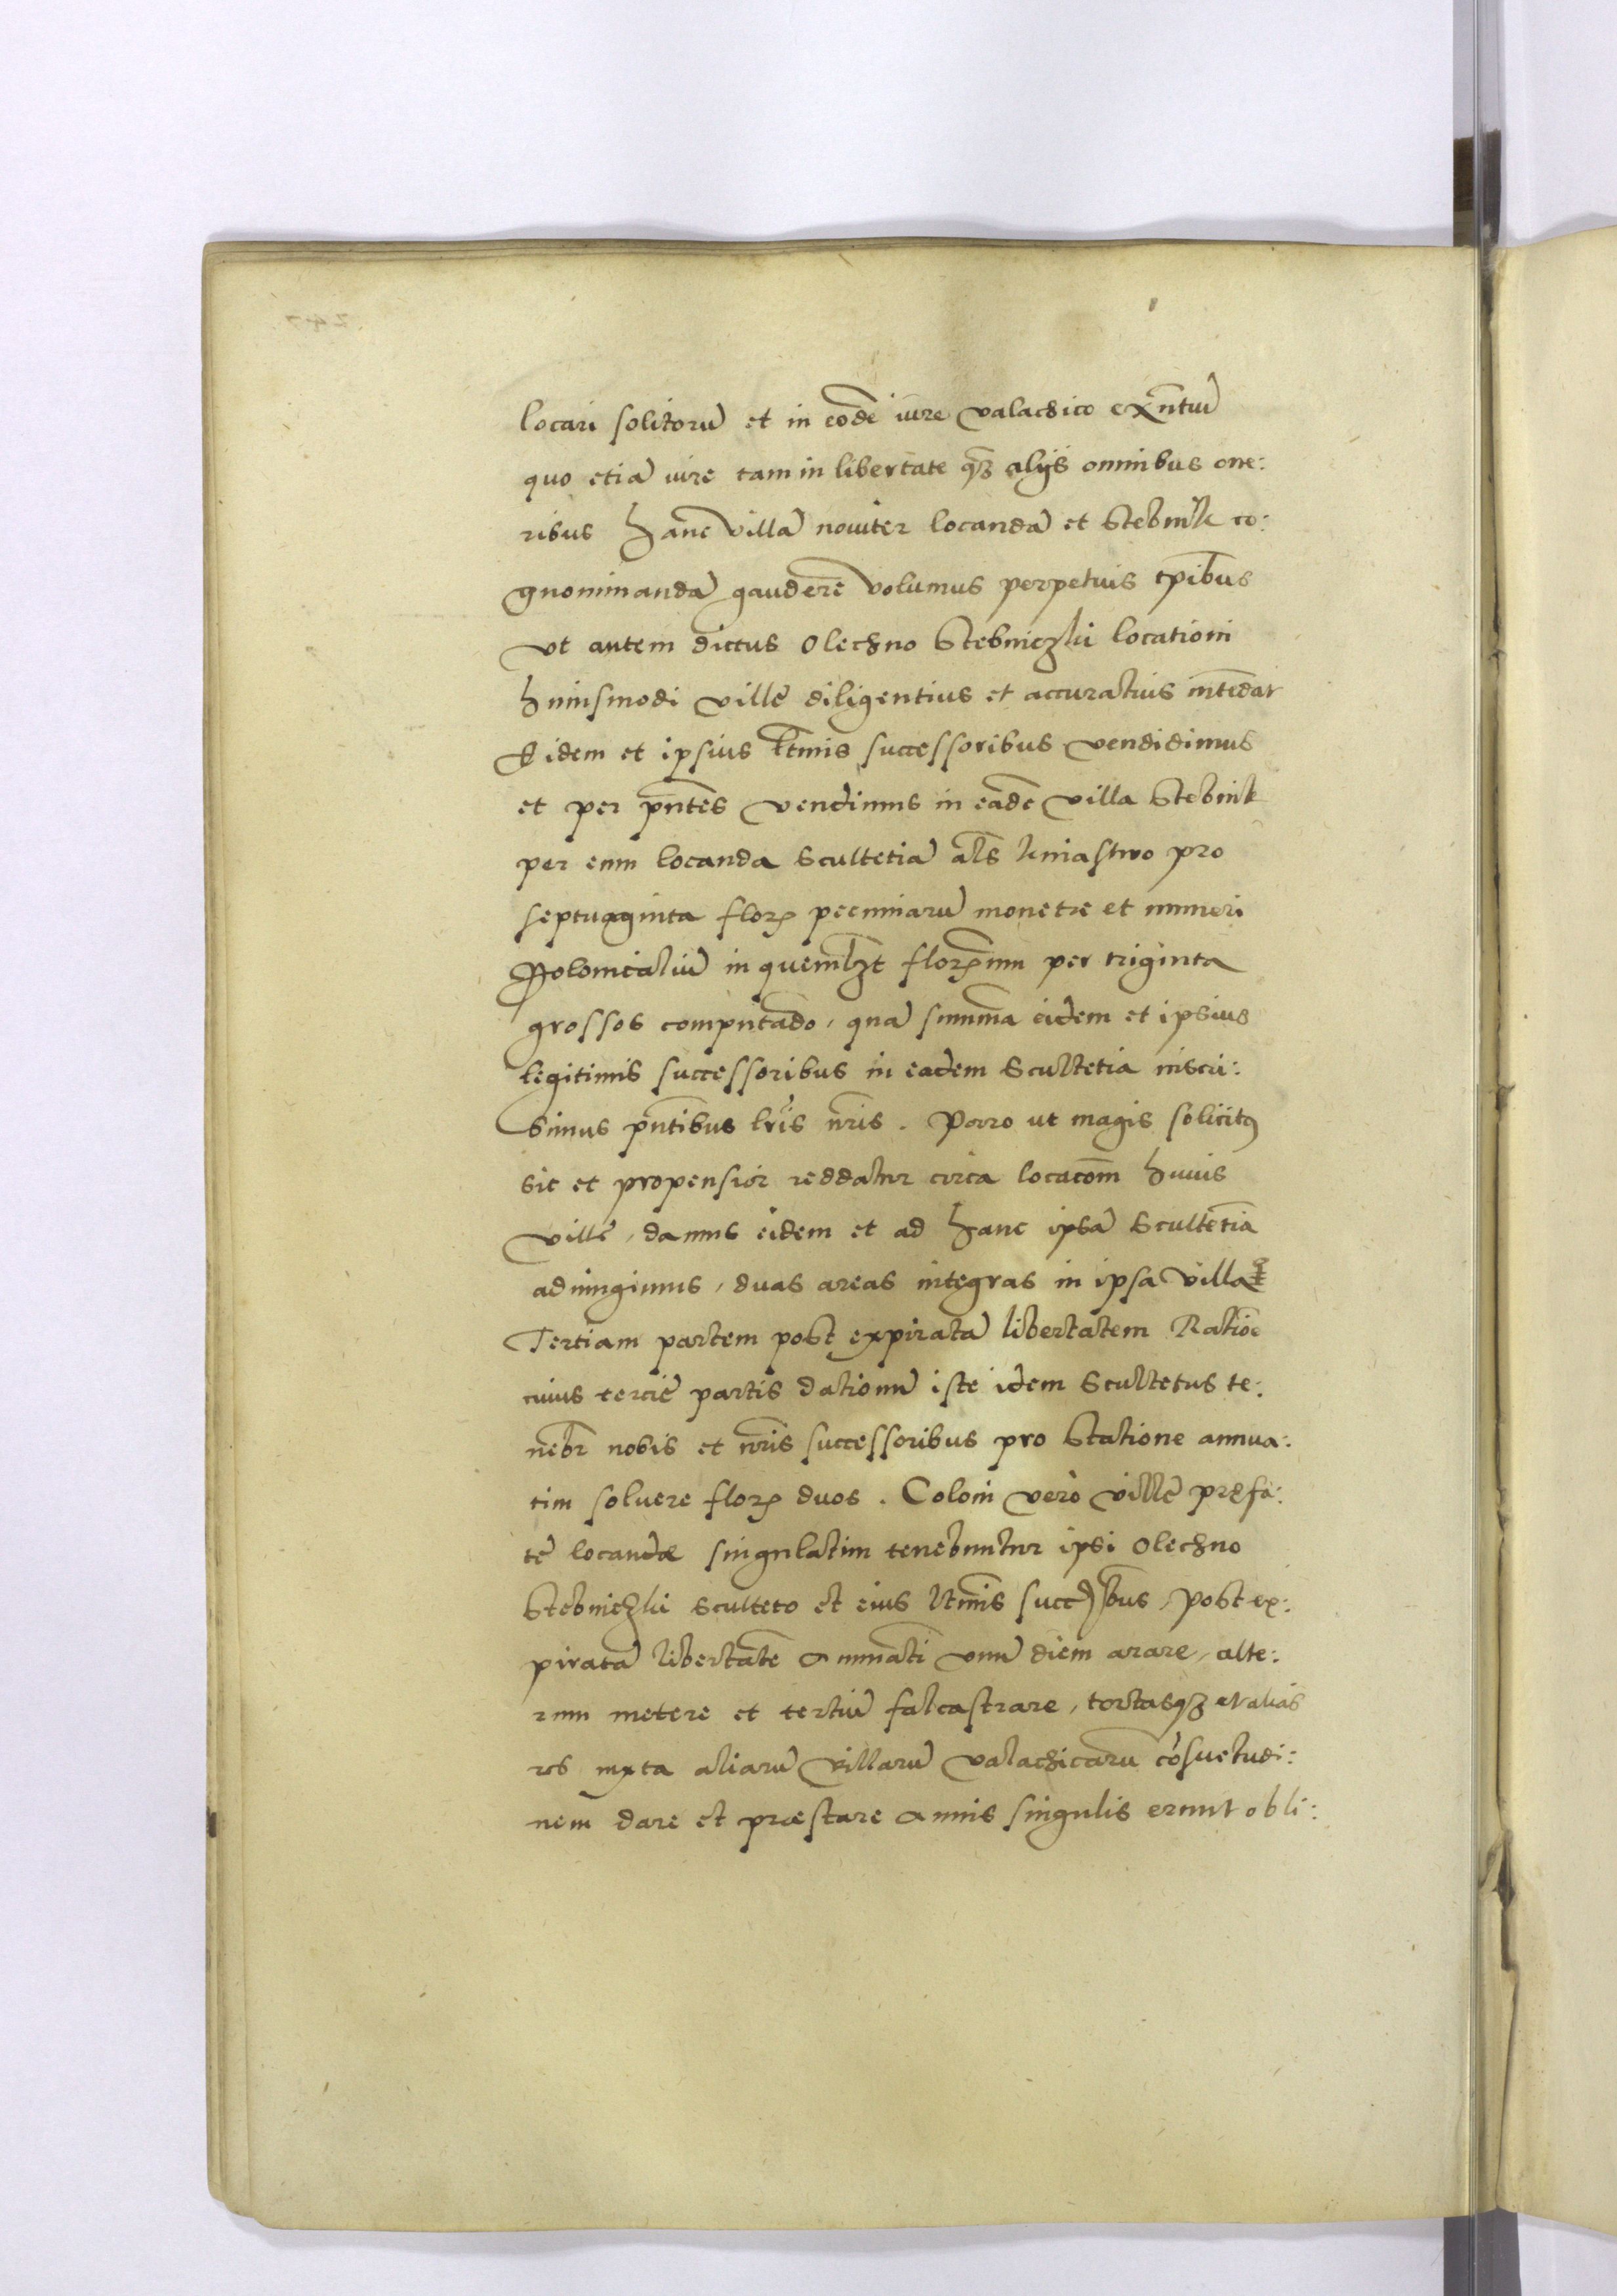 locari solitorū et in eodē iure valachico exn̄tiū
quo etiā iure tam in libertate qȝ alijs omnibus one:
ribus hanc villā noviter locandā et Stebnik co:
gnominandā gaudere volumus perpetuis tp̄ibus
vt autem dictus Olechno Stebniczki locationi
huiusmodi villę diligentius et accuratius intēdat
Eidem et ipsius ltm̄is successoribus vendidimus
et per pn̄tes vendimus in eadē villa Stebnik
per eum locanda Scultetiā als̄ kniastwo pro
septuaginta flor. pecuniarū monetæ et numeri
Polonicaliū in quemlȝt florenum per triginta
grossos computādo, quā summā eidem et ipsius
legitimis successoribus in eadem Scultetia inscri:
bimus pn̄tibus lr̄is nr̄is. Porro ut magis solicitꝰ
sit et propensior reddatur circa locacōm huius
villę, damus eidem et ad hanc ipsā Scultetiā
adiungimus, duas areas integras in ipsa villa
Tertiam partem post expiratā libertatem Ratiōe
cuius terciē partis dationū iste idem Scultetus te:
nebr̄ nobis et nr̄is successoribus pro Statione annua:
tim soluere flor. duos. Coloni verò villę pręfa:
tę locandæ singulatim tenebuntur ipsi Olechno
Stebniczki Sculteto et eius ltm̄is succ̄bus, post ex:
piratā libertatē annuatī unū diem arare, alte:
rum metere et tertiū falcastrare, tortasqȝ et alias
res iuxta aliarū villarū valachicarū cōsuetudi:
nem dare et præstare annis singulis erunt obli: